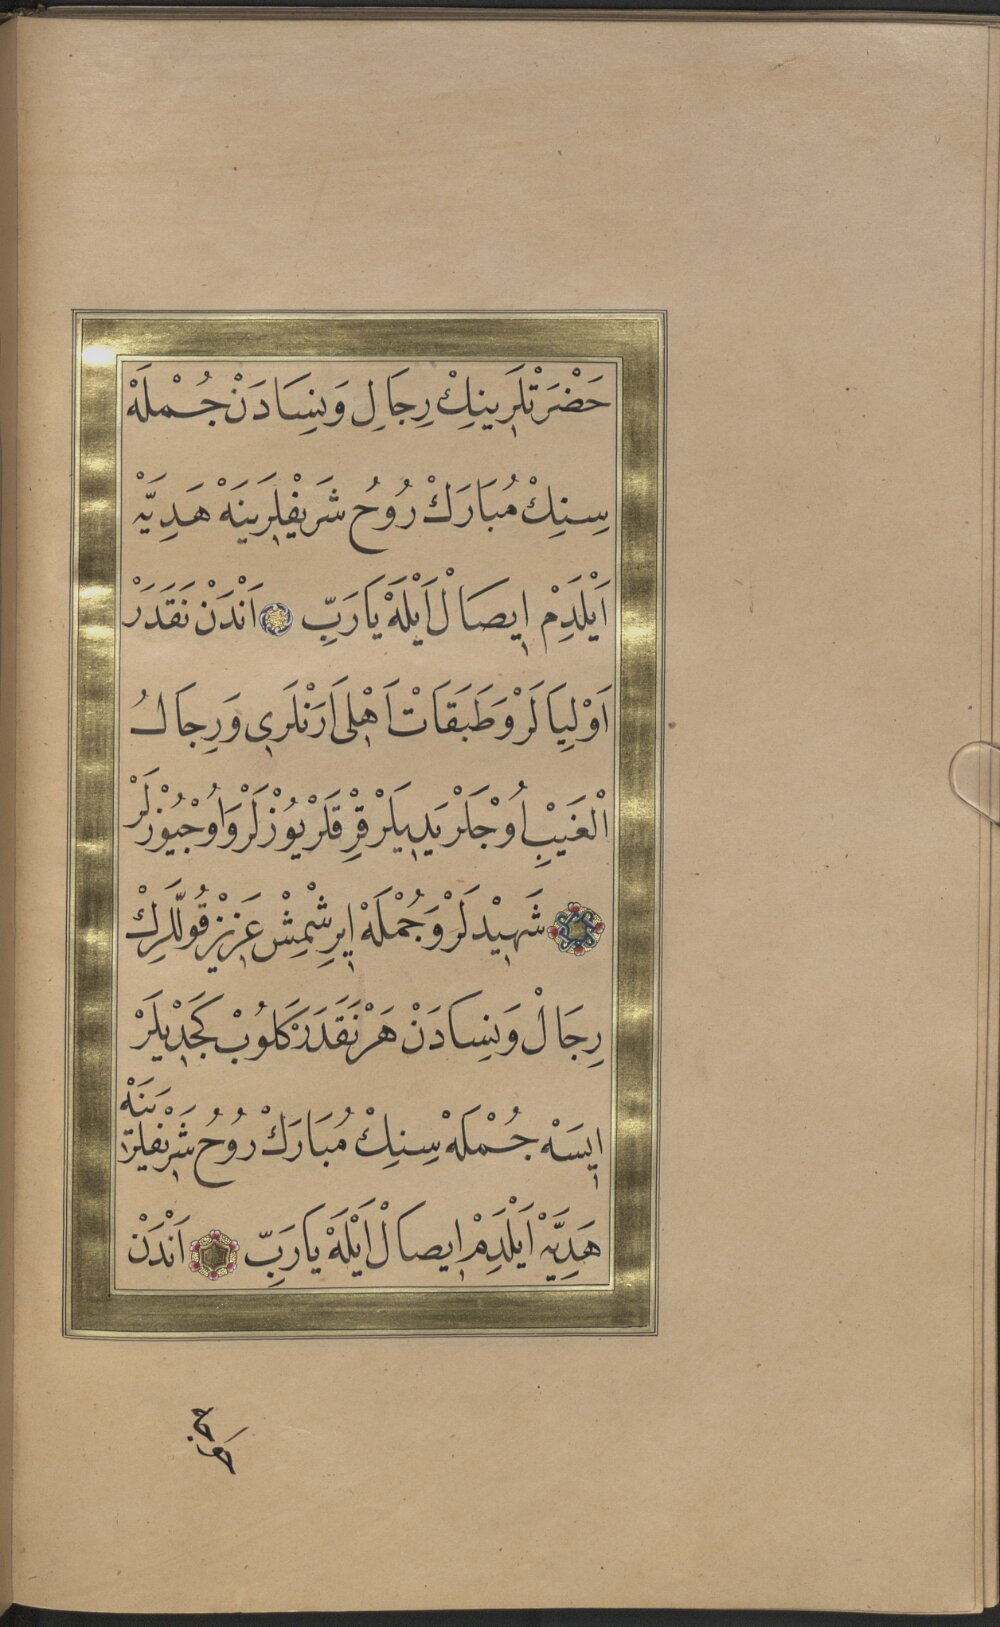 حَضْرَتْلَرِينِكْ رِجَالِ وَنِسَادَنْ جُمْلَهْ
سِنِكْ مُبَارَكْ رُوحُ شَرِيفْلَرِينَهْ هَدِيَّهْ
اَيْلَدِمْ اِيصَالْ اَيْلَهْ يَارَبِّ اَنْدَنْ نَقَدَرْ
اَوْلِيَالَرْ وَطَبَقَاتْ اَهْلِى اَرَنْلَرِى وَرِجَالُ
الْغَيْبِ اُوْجَلَرْ يَدِيلَرْ قِرْقَلَرْ يُوزْلَرْ وَاُوْجْيُوزْلَرْ
شَهِيْدلَرْ وَجُمْلَهْ اِيرِشْمِشْ عَزِيزْ قُوللَّرِكْ
رِجَالْ وَنِسادَنْ هَرْ نَقَدَرْ كَلُوبْ كَجْدِيلَرْ
اِيسَهْ جُمْلَهْ سِنِكْ مُبَارَكْ رُوحُ شَرِيْفلَرِينَهْ
هَدِيَّهْ اَيْلَدِمْ اِيصالْ اَيْلَهْ يَارَبِّ اَنْدَنْ